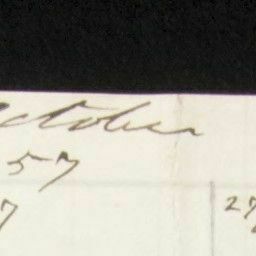 October
57
7
27